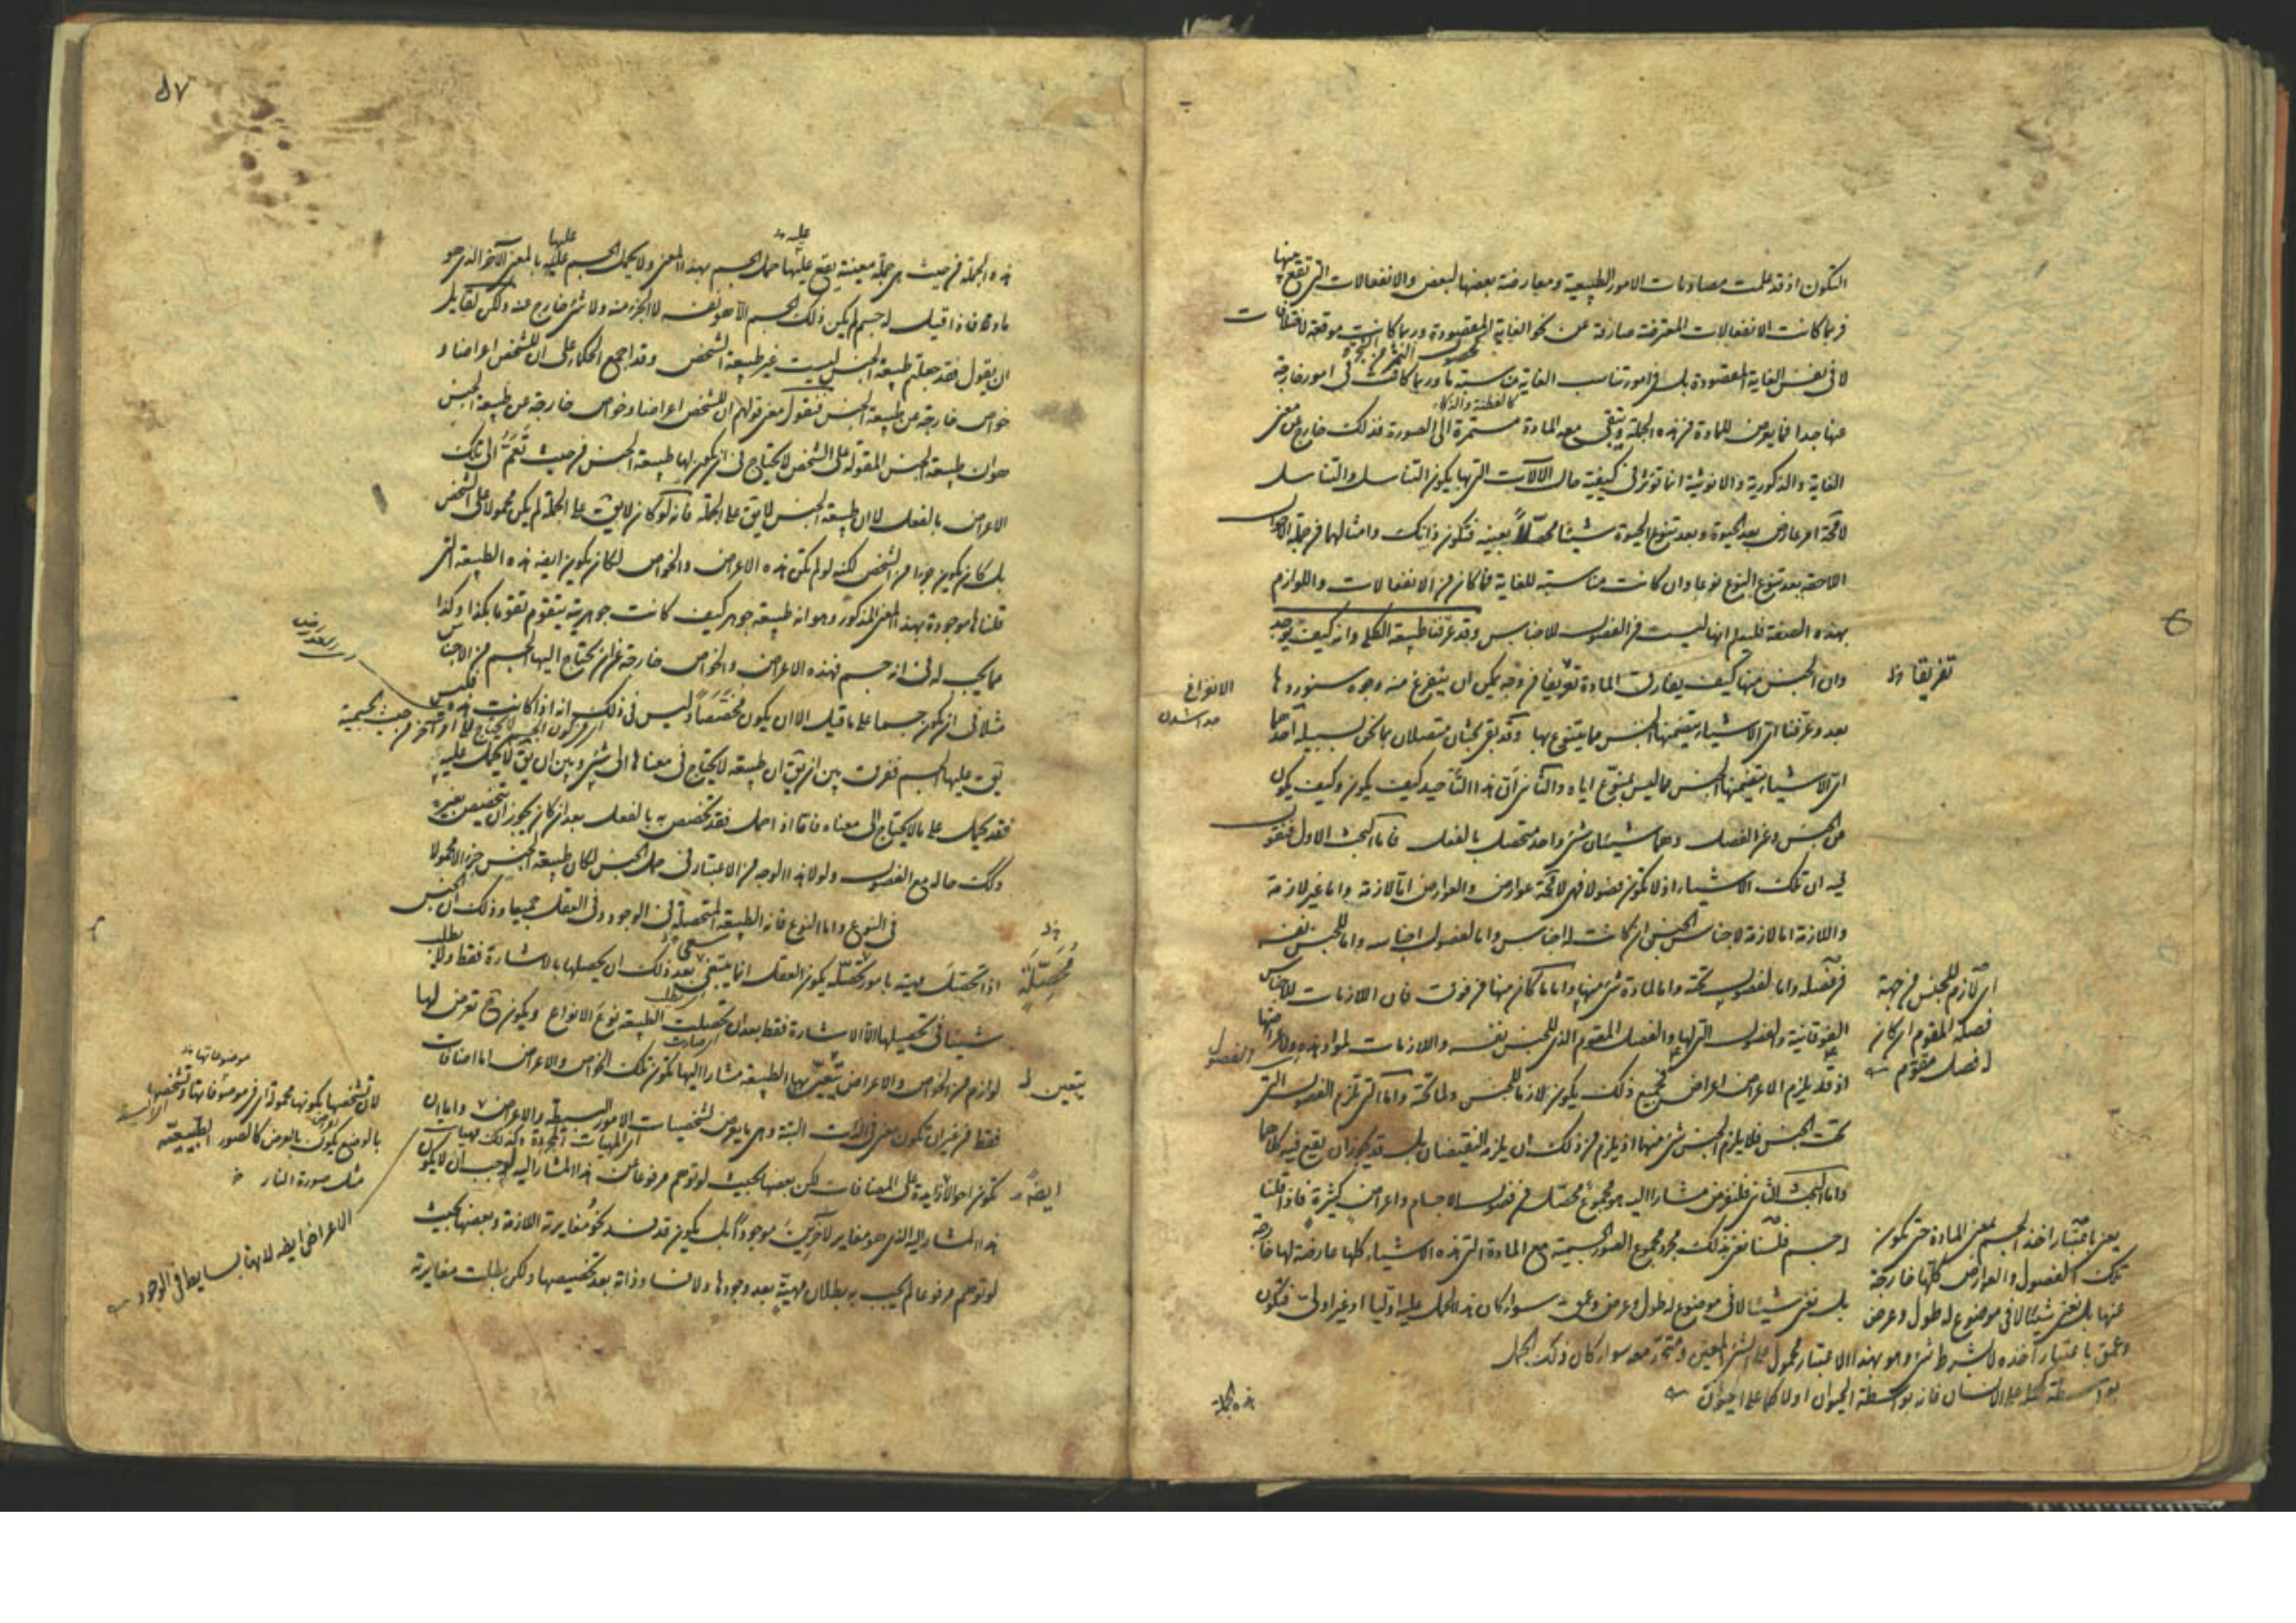 التكون اذ قد علمت مصادمات الامور الطبيعية ومعارضة بعضها لبعض والانفعالات التى تقع منها
فربما كانت الانفعالات المعترضة صارفة عن نحو الغاية المقصودة وربما كانت موقعة لاختلافات
لا فى نفس الغاية المقصودة بل فى امور تناسب الغاية مناسبة ما وربما كانت فى امور خارجة
عنها جدا فما يعرض للمادة من هذه الجملة ويبقى معه المادة مستمرة الى الصورة فذلك خارج عن معنى
الغاية والذكورية والانوثية انما تؤثر فى كيفية حال الالات التى بها يكون التناسل والتناسل
لا محة امر عارض بعد الحيوة وبعد تنوع الحيوة شيئا محصلا بعينه فتكون ذانك وامثالهما من جملة الاحوال
اللاحقة بعد تنوع النوع نوعا وان كانت مناسبة للغاية فما كان من الانفعالات واللوازم
بهذه الصفة فليعلم انها ليست من الفصول للاجناس وقد عرفنا طبيعة الكلى وانه كيف يوجد
وان الجنس منها كيف يفارق المادة تعريفا من وجه يمكن ان يتفرع منه وجوه سنوردها
بعد وعرفنا اى الاشياء يتضمنها الجنس مما يتنوع بها وقد بقى بحثان متصلان بما نحن بسبيله احدهما
اى الاشياء يتضمنها الجنس مما ليس بمنوع اياه والثانى ان هذا التاحيد كيف يكون وكيف يكون
من الجنس وعن الفصل وهما شيئان شئ واحد متحصل بالفعل فاما البحث الاول فنقول
فيه ان تلك الاشياء اذ لا تكون فصولا فهى لا محة عوارض والعوارض اما لازمة واما غير لازمة
واللازمة اما لازمة لاجناس الجنس ان كانت له اجناس واما لفصول اجناسه واما للجنس نفسه
من فصله واما لفصول تحته واما لمادة شئ منها واما ما كان منها من فوق فان اللازمات للاجناس
الفوقانية والفصول التى لها والفصل المقوم الذى للجنس نفسه واللازمات لمواد هذه ولاعراضها
اذ قد يلزم الاعراض اعراض فجميع ذلك يكون لازما للجنس ولما تحته واما التى تلزم الفصول التى
تحت الجنس فلا يلزم الجنس شئ منها اذ يلزم من ذلك ان يلزمه النقيضان بل قد يجوز ان يقع فيه كلاهما
واما البحث الثانى فلنفرض مشارا اليه هو مجموع محصل من فصول الاجسام واعراض كثيرة فاذا قلنا
له جسم فلسنا نعنى بذلك مجرد مجموع الصورة الجسمية مع المادة التى هذه الاشياء كلها عارضة لها خارجة
بل نعنى شيئا لا فى موضوع له طول وعرض وعمق سواء كان هذا الحمل عليه اوليا او غير اولى فتكون
هذه الجملة
كالفطنة والذكاء
تفريقا
الانواع
اى لازم للجنس من جهة
فصله المقوم ان كان
له فصل مقوم
والفصول
يعنى باعتبار اخذ الجسم بمعنى المادة حتى تكون
تلك الفصول والعوارض كلها خارجة
عنها بل نعنى شيئا لا فى موضوع له طول وعرض
وعمق باعتبار اخذه لا بشرط شئ وهو بهذا الاعتبار محمول على الشئ المعين ومتحد معه سواء كان ذلك الحمل
بواسطة كما على الانسان فانه بواسطة الحيوان اولا كما على الحيوان
٥٧
هذه الجملة من حيث هى جملة معينة يقع عليها حمل الجسم بهذا المعنى ولا يحمل الجسم عليها بالمعنى الآخر الذى هو
مادة فاذا قيل له جسم لم يكن ذلك الجسم الا هو نفسه لا الجزء منه ولا شئ خارج عنه ولكن لقايل
ان يقول فقد جعلتم طبيعة الجنس ليست غير طبيعة الشخص وقد اجمع الحكماء على ان للشخص اعراضا و
خواص خارجة عن طبيعة الجنس فنقول معنى قولهم ان للشخص اعراضا وخواص خارجة عن طبيعة الجنس
هو ان طبيعة الجنس المقولة على الشخص لا تحتاج فى ان تكون لها طبيعة الجنس من حيث تعم الى تلك
الاعراض بالفعل لا ان طبيعة الجنس لا يق على الجملة فانه لو كان لا يق على الجملة لم يكن محمولا على الشخص
بل كان يكون جزءا من الشخص لكنه لو لم تكن هذه الاعراض والخواص لكان يكون ايضه هذه الطبيعة التى
قلناها موجودة بهذا المعنى المذكور وهو انه طبيعة جوهر كيف كانت جوهريته يتقوم تقوما بكذا وكذا
مما يجب له فى انه جسم فهذه الاعراض والخواص خارجة عن ان يحتاج اليها الجسم من الاجناس
مثلا فى ان يكون جسما على ما قيل الا ان يكون مخصصا وليس فى ذلك انه اذا كانت هذه فليس
يق عليها الجسم ففرق بين ان يق ان طبيعة لا يحتاج فى معناها الى شئ وبين ان يق لا يحمل عليه
فقد يحمل على ما لا يحتاج الى معناه فاما اذا حمل فقد تخصص به بالفعل بعد ان كان يجوز ان يتخصص بغيره
وكك حاله مع الفصول ولولا هذا الوجه من الاعتبار فى حمل الجنس لكان طبيعة الجنس جزءا لا محمولا
فى النوع واما النوع فانه الطبيعة المتحصلة فى الوجود وفى العقل جميعا وذلك ان الجنس
اذا تحصلت مهيته بامور تحصله يكون العقل انما ينبغى بعد ذلك ان يحصلها بالاشارة فقط ولا يطلب
شيئا فى تحصيلها الا الاشارة فقط بعد ان تحصلت الطبيعة نوع الانواع ويكون ح تعرض لها
لوازم من الخواص والاعراض يتعين بها الطبيعة مشارا اليها تكون تلك الخواص والاعراض اما اضافات
فقط من غير ان تكون معنى فى الذات البتة وهى ما يعرض لشخصيات الامور البسيطة والاعراض واما ان
تكون احوالا زايدة على المضافات لكن بعضها بحيث لو توهم مرفوعا عن هذا المشار اليه لوجب ان لا يكون
هذا المشار اليه الذى هو مغاير لآخرين موجودا بل يكون قد فسد نحو مغايرته اللازمة وبعضها بحيث
لو توهم مرفوعا لم يجب به بطلان مهيته بعد وجودها ولا فساد ذاته بعد تخصيصها ولكن بطلت مغايرته
محصلة
يتعين
ايضا
لان تشخصها بكونها محمولة
بالوضع يكون بالعرض كالصور الطبيعية
مثل صورة النار
الاعراض ايضه لانها بسايط فى الوجود